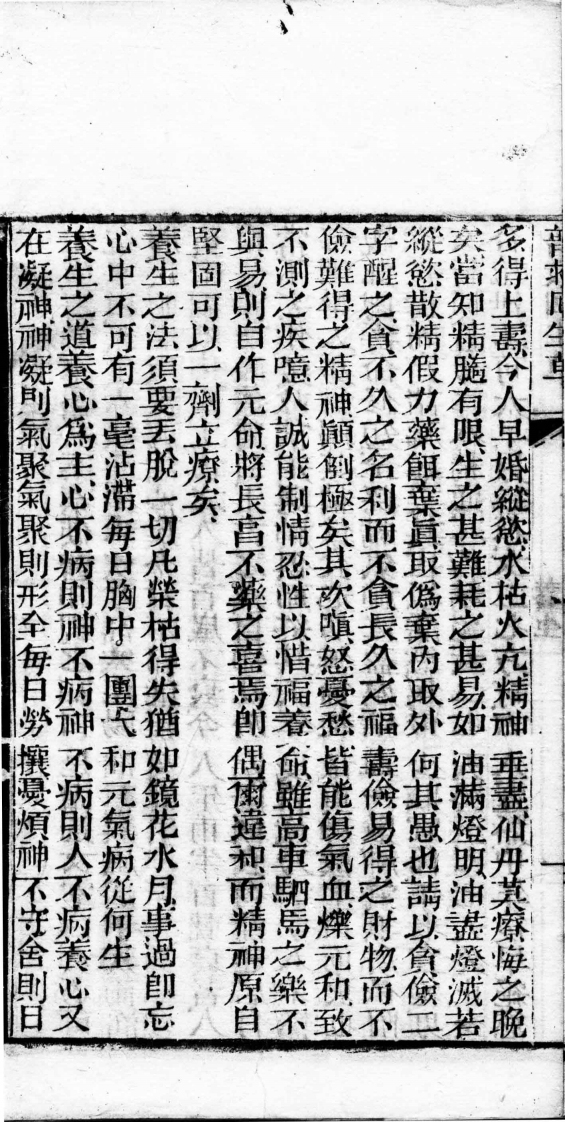 多得上壽今人早婚縱慾水枯火亢精神垂盡仙丹莫療悔之晚
矣當知精髓有限生之甚難耗之甚易如油滿燈明油盡燈滅若
縱慾散精假力藥餌棄眞取僞棄內取外何其愚也請以貪儉二
字醒之貪不久之名利而不貪長久之福壽儉易得之財物而不
儉難得之精神顚倒極矣其次嗔怒憂愁皆能傷氣血爍元和致
不測之疾噫人誠能制情忍性以惜福養命雖高車駟馬之樂不
與易則自作元命將長享不藥之喜焉卽偶爾違和而精神原自
堅固可以一劑立療矣
養生之法須要丟脫一切凡榮枯得失猶如鏡花水月事過卽忘
心中不可有一毫沾滯每日胸中一團太和元氣病從何生
養生之道養心爲主心不病則神不病神不病則人不病養心又
在凝神神凝則氣聚氣聚則形全每日勞攘憂煩神不守舍則日